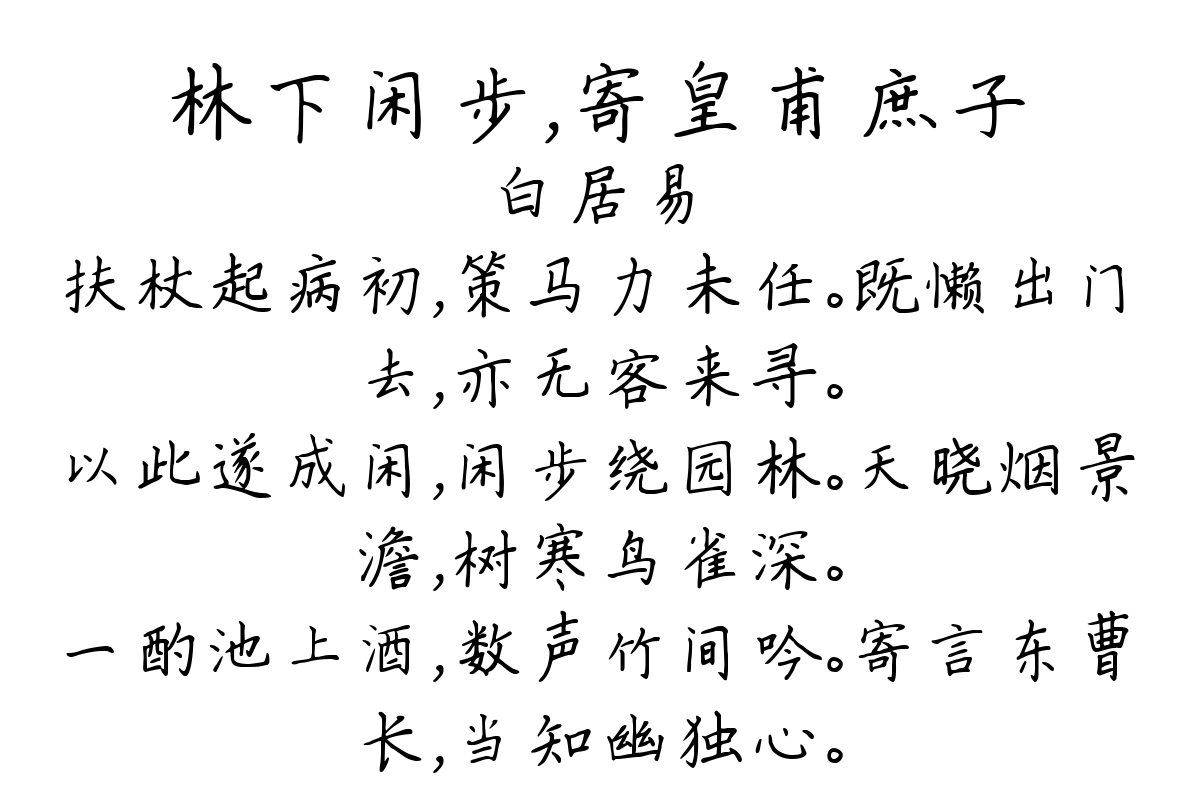 林下闲步,寄皇甫庶子
白居易
扶杖起病初,策马力未任。既懒出门
去,亦无客来寻。
以此遂成闲,闲步绕园林。天晓烟景
澹,树寒鸟雀深。
一酌池上酒,数声竹间吟。寄言东曹
长,当知幽独心。